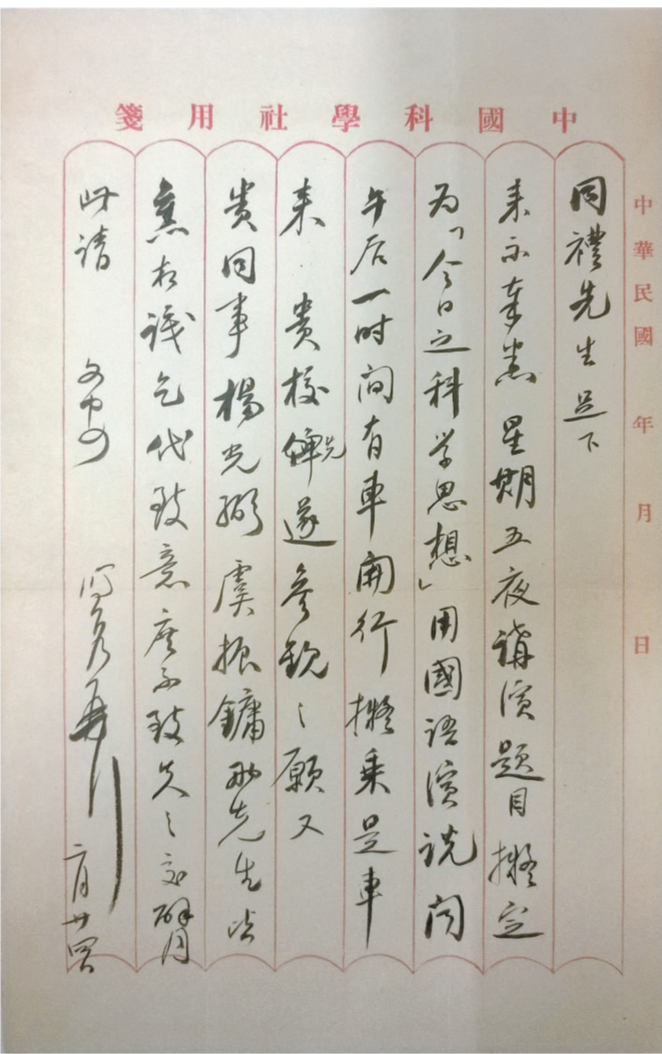 中國科學社用箋
中華民國 年 月 日
同禮先生足下
来示奉悉星期五夜講演題目擬定
为「今日之科学思想」用國语演说闻
午后一时间有車開行擬乘是車
来 貴校俾先遂参觀之願又
貴同事楊光弼虞振鏞兩先生皆
舊相識乞代致意庶不致失之交臂
此請 文安 二月廿四